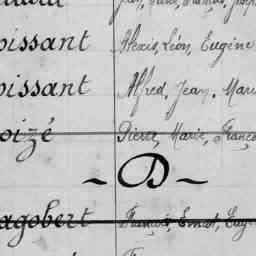 oissant Alexis, Léon, Eugène
oissant Alfred, Jean, Mari
oizé Pierre, Marie, Franço
~ D ~
agobert François, Ernest, Eug